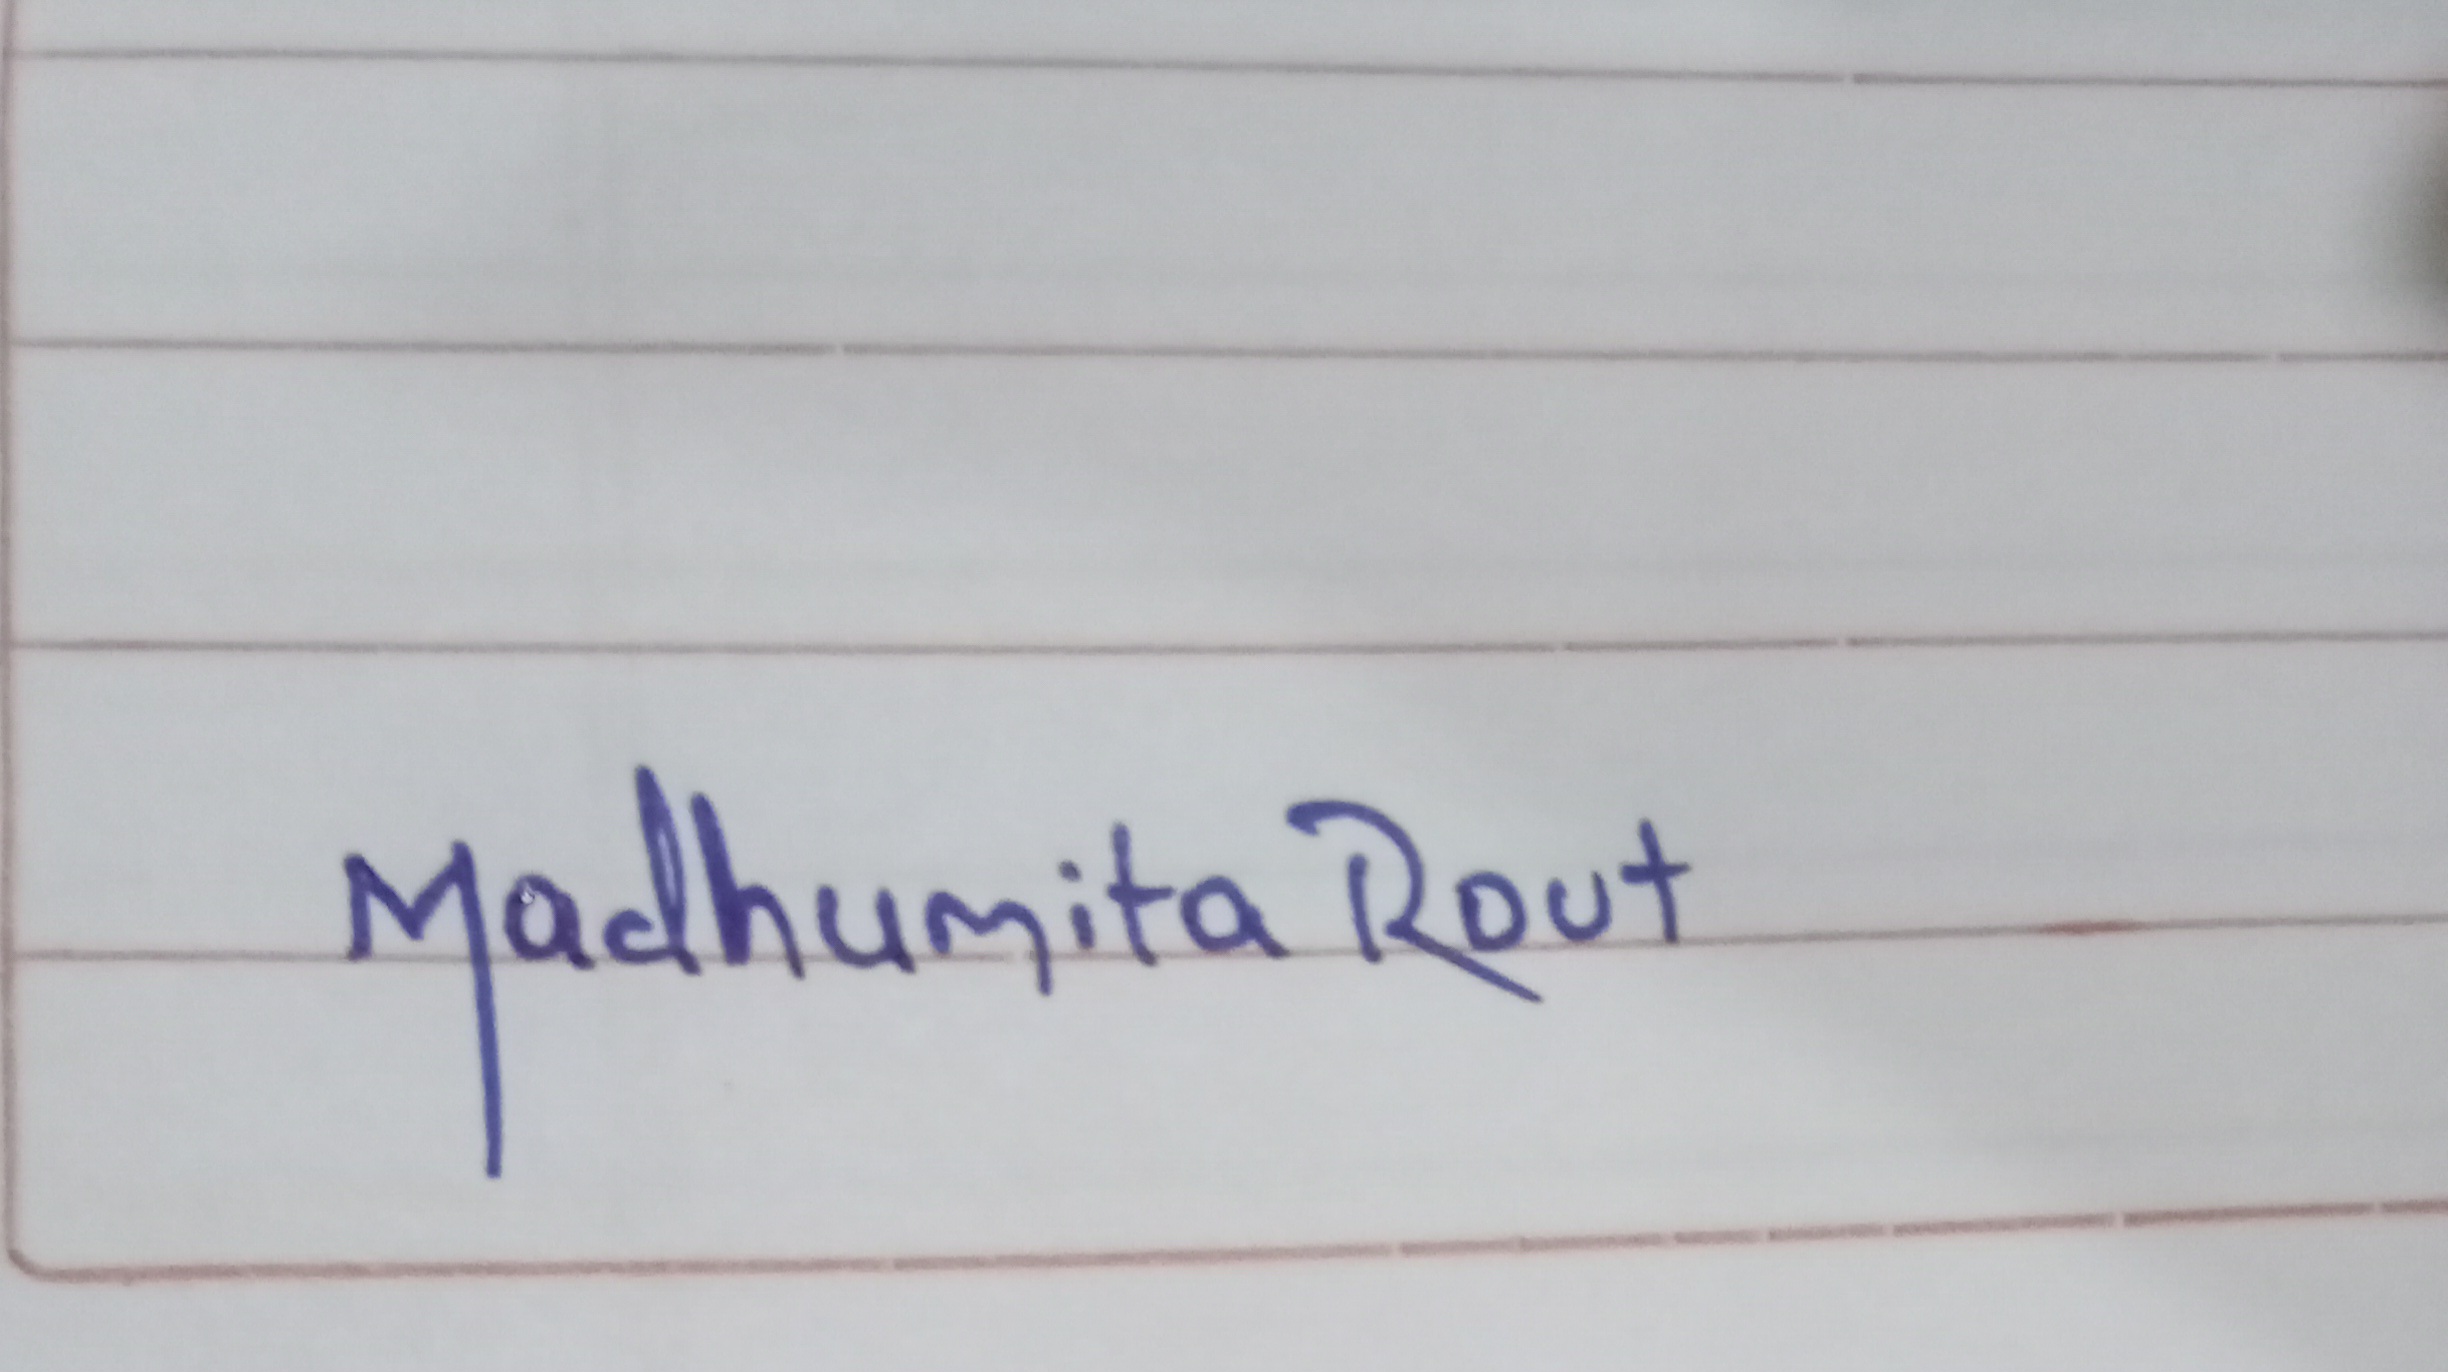 Madhumita Rout